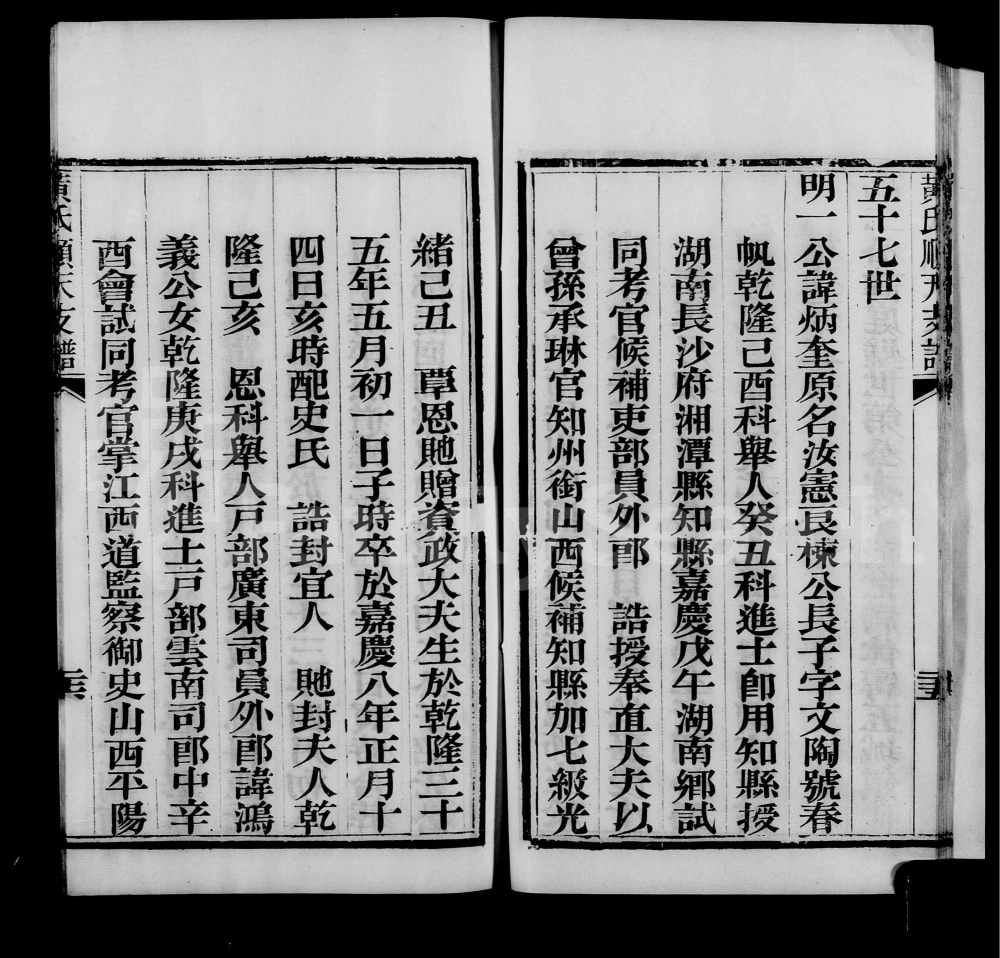 黃氏順天支譜
五十七世
明一公諱炳奎原名汝憲艮棟公長子字文陶號春
帆乾隆己酉科舉人癸丑科進士卽用知縣授
湖南長沙府湘潭縣知縣嘉慶戊午湖南鄉試
同考官候補吏部員外郎　誥授奉直大夫以
曾孫承琳官知州銜山西候補知縣加七級光
緒己丑　覃恩貤贈資政大夫生於乾隆三十
五年五月初一日子時卒於嘉慶八年正月十
四日亥時配史氏　誥封宜人　貤封夫人乾
隆己亥　恩科舉人戸部廣東司員外郎諱鴻
義公女乾隆庚戌科進士戸部雲南司郎中辛
酉會試同考官掌江西道監察御史山西平陽
黃氏順天支譜